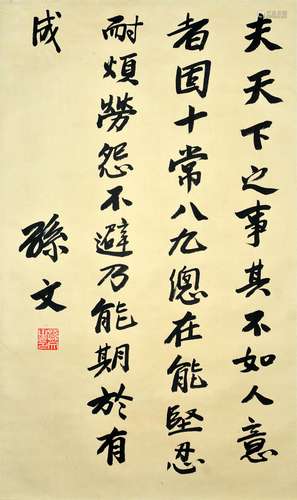 夫天下之事其不如人意
者固十常八九總在能堅忍
耐煩勞怨不避乃能期於有
成
孫文